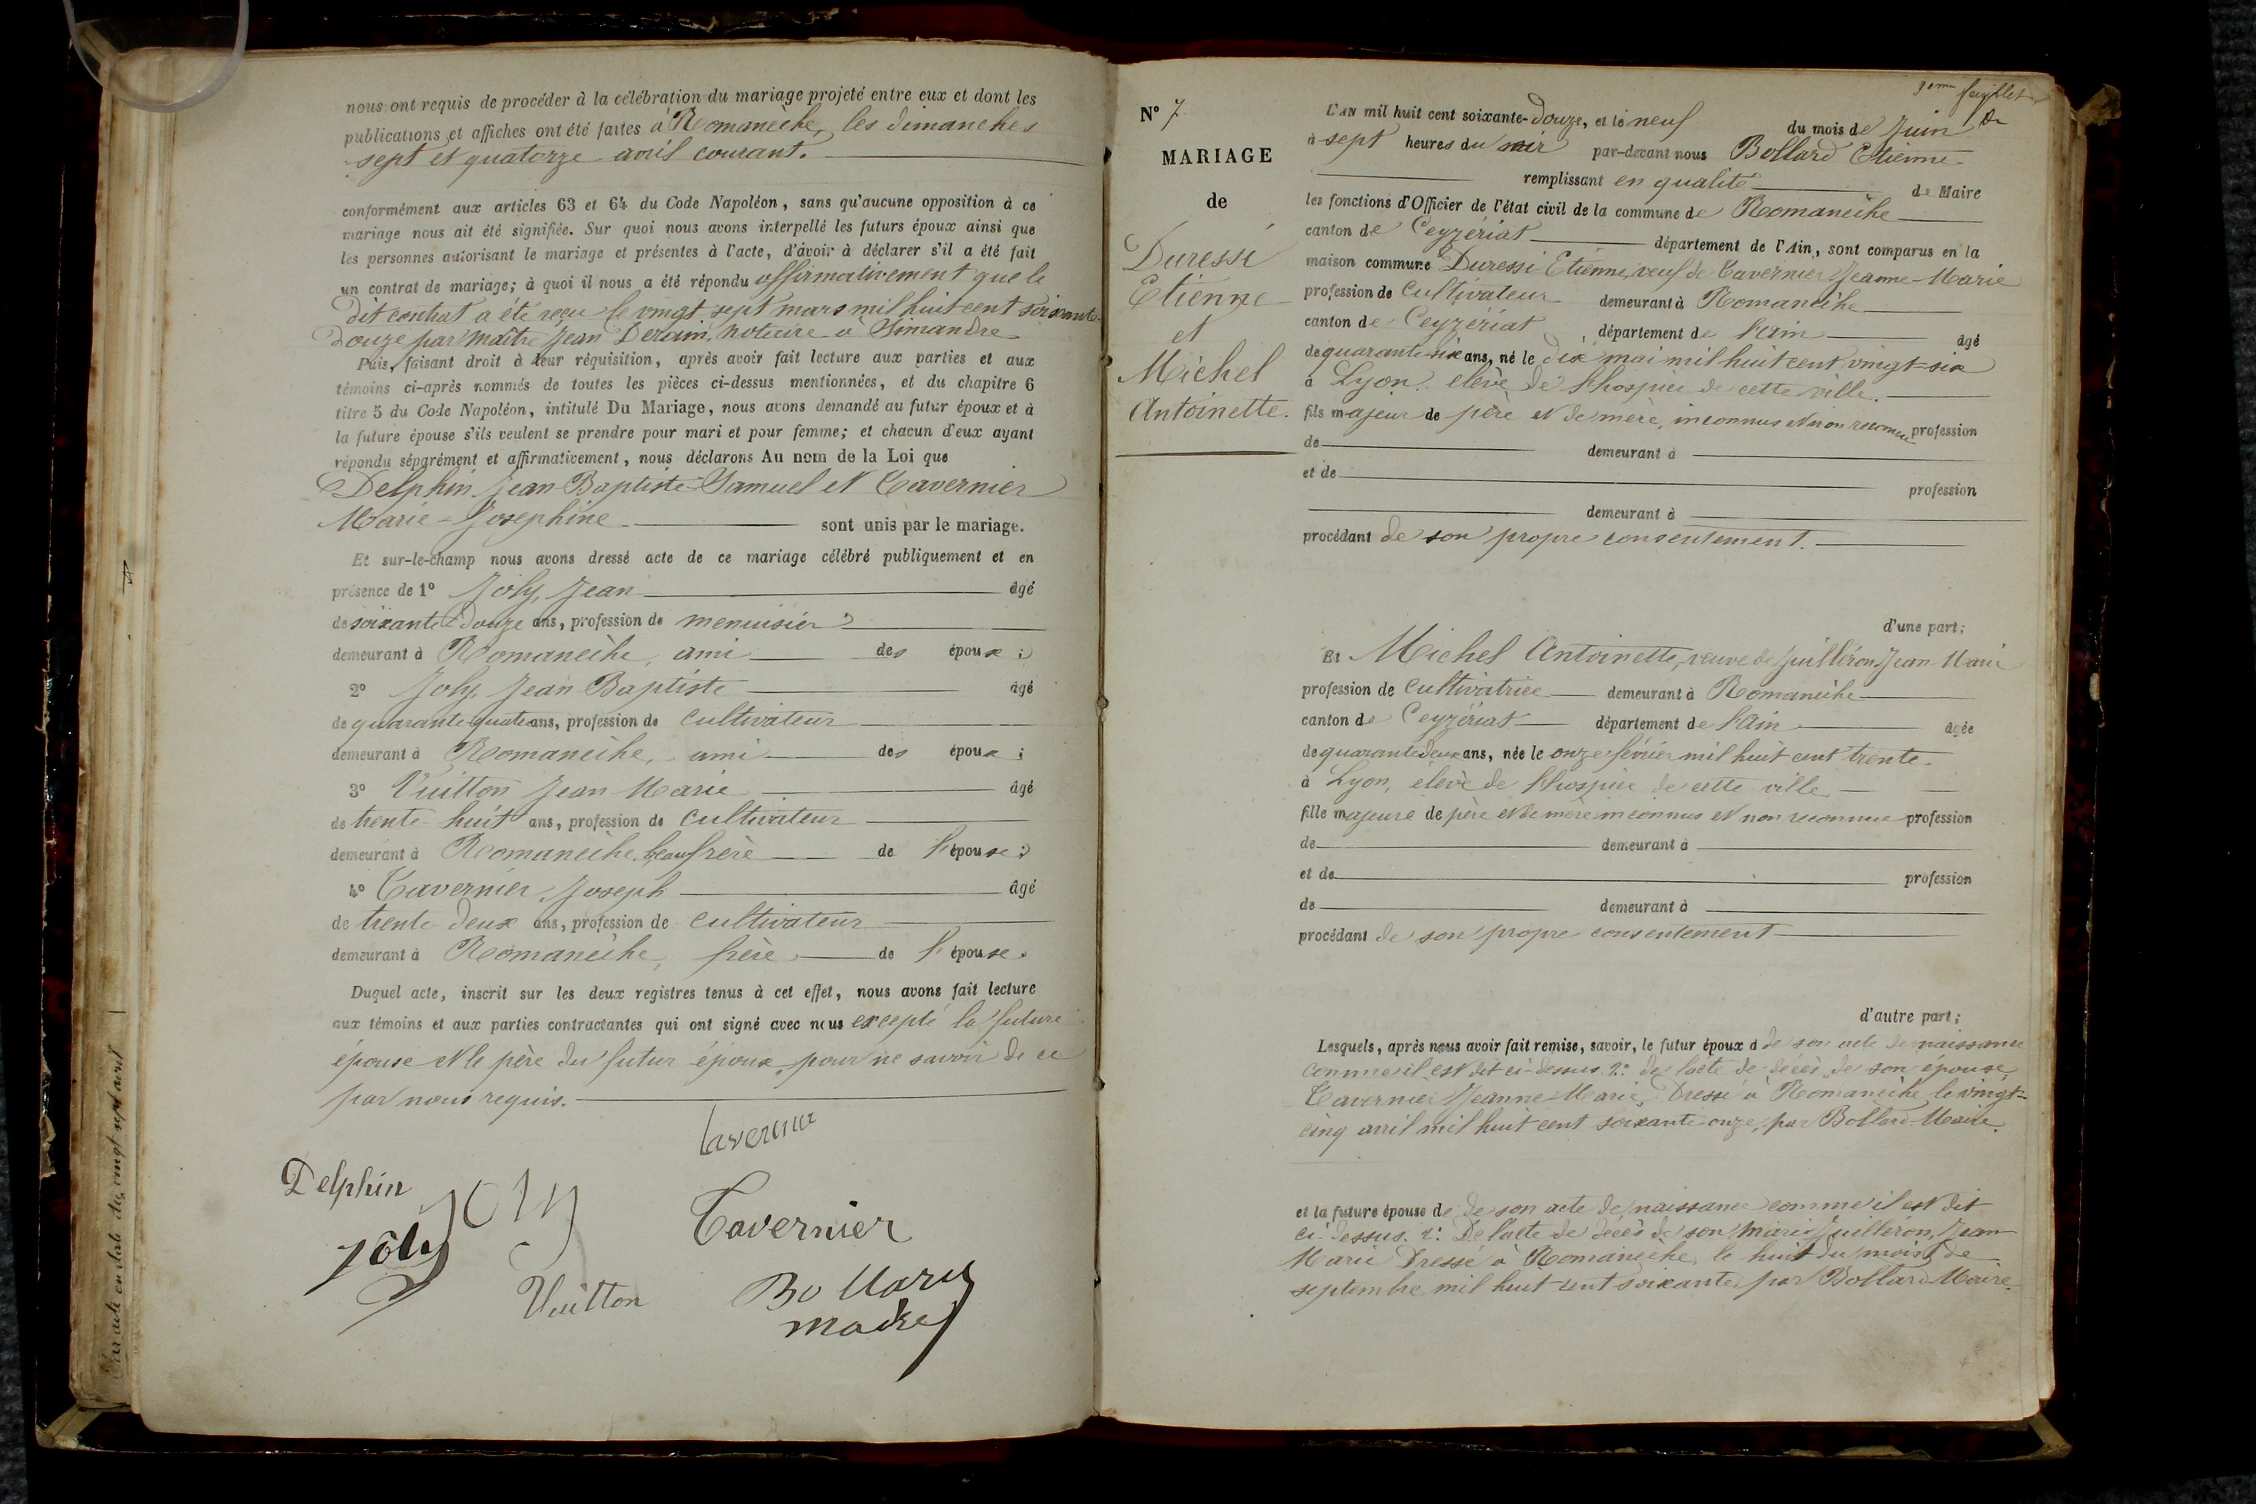 nous ont requis de procéder à la célébration du mariage projeté entre eux et dont les
publications et affiches ont été faites à Romanèche, les dimanches
sept et quatorze avril courant.
conformément aux articles 63 et 64 du Code Napoléon, sans qu'aucune opposition à ce
mariage nous ait été signifiée. Sur quoi nous avons interpellé les futurs époux ainsi que
les personnes autorisant le mariage et présentes à l'acte, d'avoir à déclarer s'il a été fait
un contrat de mariage; à quoi il nous a été répondu affirmativement que le
dit contrat a été reçu le vingt sept mars mil huit cent soixante-
douze par maître Jean Derain, notaire à Simandre
Puis, faisant droit à leur réquisition, après avoir fait lecture aux parties et aux
témoins ci-après nommés de toutes les pièces ci-dessus mentionnées, et du chapitre 6
titre 5 du Code Napoléon, intitulé Du Mariage, nous avons demandé au futur époux et à
la future épouse s'ils veulent se prendre pour mari et pour femme; et chacun d'eux ayant
répondu séparément et affirmativement, nous déclarons Au nom de la Loi que
Delphin Jean Baptiste Samuel et Tavernier
Marie-Josephine sont unis par le mariage.
Et sur-le-champ nous avons dressé acte de ce mariage célébré publiquement et en
présence de 1° Joly, Jean âgé
de soixante douze ans, profession de menuisier
demeurant à Romanèche, ami des époux;
2° Joly, Jean Baptiste âgé
de quarante quatre ans, profession de cultivateur
demeurant à Romanèche, ami des époux;
3° Vuitton Jean Marie âgé
de trente-huit ans, profession de cultivateur
demeurant à Romanèche, beau frère de l'épouse;
4° Tavernier, Joseph âgé
de trente deux ans, profession de cultivateur
demeurant à Romanèche, frère de l'épouse.
Duquel acte, inscrit sur les deux registres tenus à cet effet, nous avons fait lecture
aux témoins et aux parties contractantes qui ont signé avec nous excepté la future
épouse et le père du futur époux, pour ne savoir de ce
par nous requis.
Tavernier
Delphin
Joly
Joly
Tavernier
Vuitton
Bollard
maire
9eme feuillet
N° 7
MARIAGE
de
Duressi
Etienne
et
Michel
Antoinette.
L'AN mil huit cent soixante-douze, et le neuf du mois de Juin
à sept heures du soir par-devant nous Bollard Etienne
remplissant en qualité de Maire
les fonctions d'Officier de l'état civil de la commune de Romanèche
canton de Ceyzériat département de l'Ain, sont comparus en la
maison commune Duressi Etienne, veuf de Tavernier Jeanne-Marie
profession de cultivateur demeurant à Romanèche
canton de Ceyzériat département de l'ain âgé
de quarante-six ans, né le dix mai mil huit cent vingt-six
à Lyon, elève de l'hospice de cette ville.
fils majeur de père et de mère, inconnus et non reconnu profession
de demeurant à
et de profession
demeurant à
procédant de son propre consentement.
d'une part;
Et Michel Antoinette, veuve de Juilleron Jean Marie
profession de cultivatrice demeurant à Romanèche
canton de Ceyzériat département de l'ain âgée
de quarante deux ans, née le onze février mil huit cent trente
à Lyon, elève de l'hospice de cette ville
fille majeure de père et de mère inconnus et non reconnue profession
de demeurant à
et de profession
de demeurant à
procédant de son propre consentement
d'autre part;
Lesquels, après nous avoir fait remise, savoir, le futur époux d de son acte de naissance
comme il est dit ci-dessus 2° de l'acte de décès de son épouse
Tavernier Jeanne-Marie, dressé à Romanèche le vingt-
cinq avril mil huit cent soixante-onze, par Bollard Maire.
et la future épouse de de son acte de naissance comme il est dit
ci-dessus. 2° De l'acte de décès de son mari Juilleron, Jean
Marie dressé à Romanèche, le huit du mois de
septembre mil huit cent soixante, par Bollard Maire.